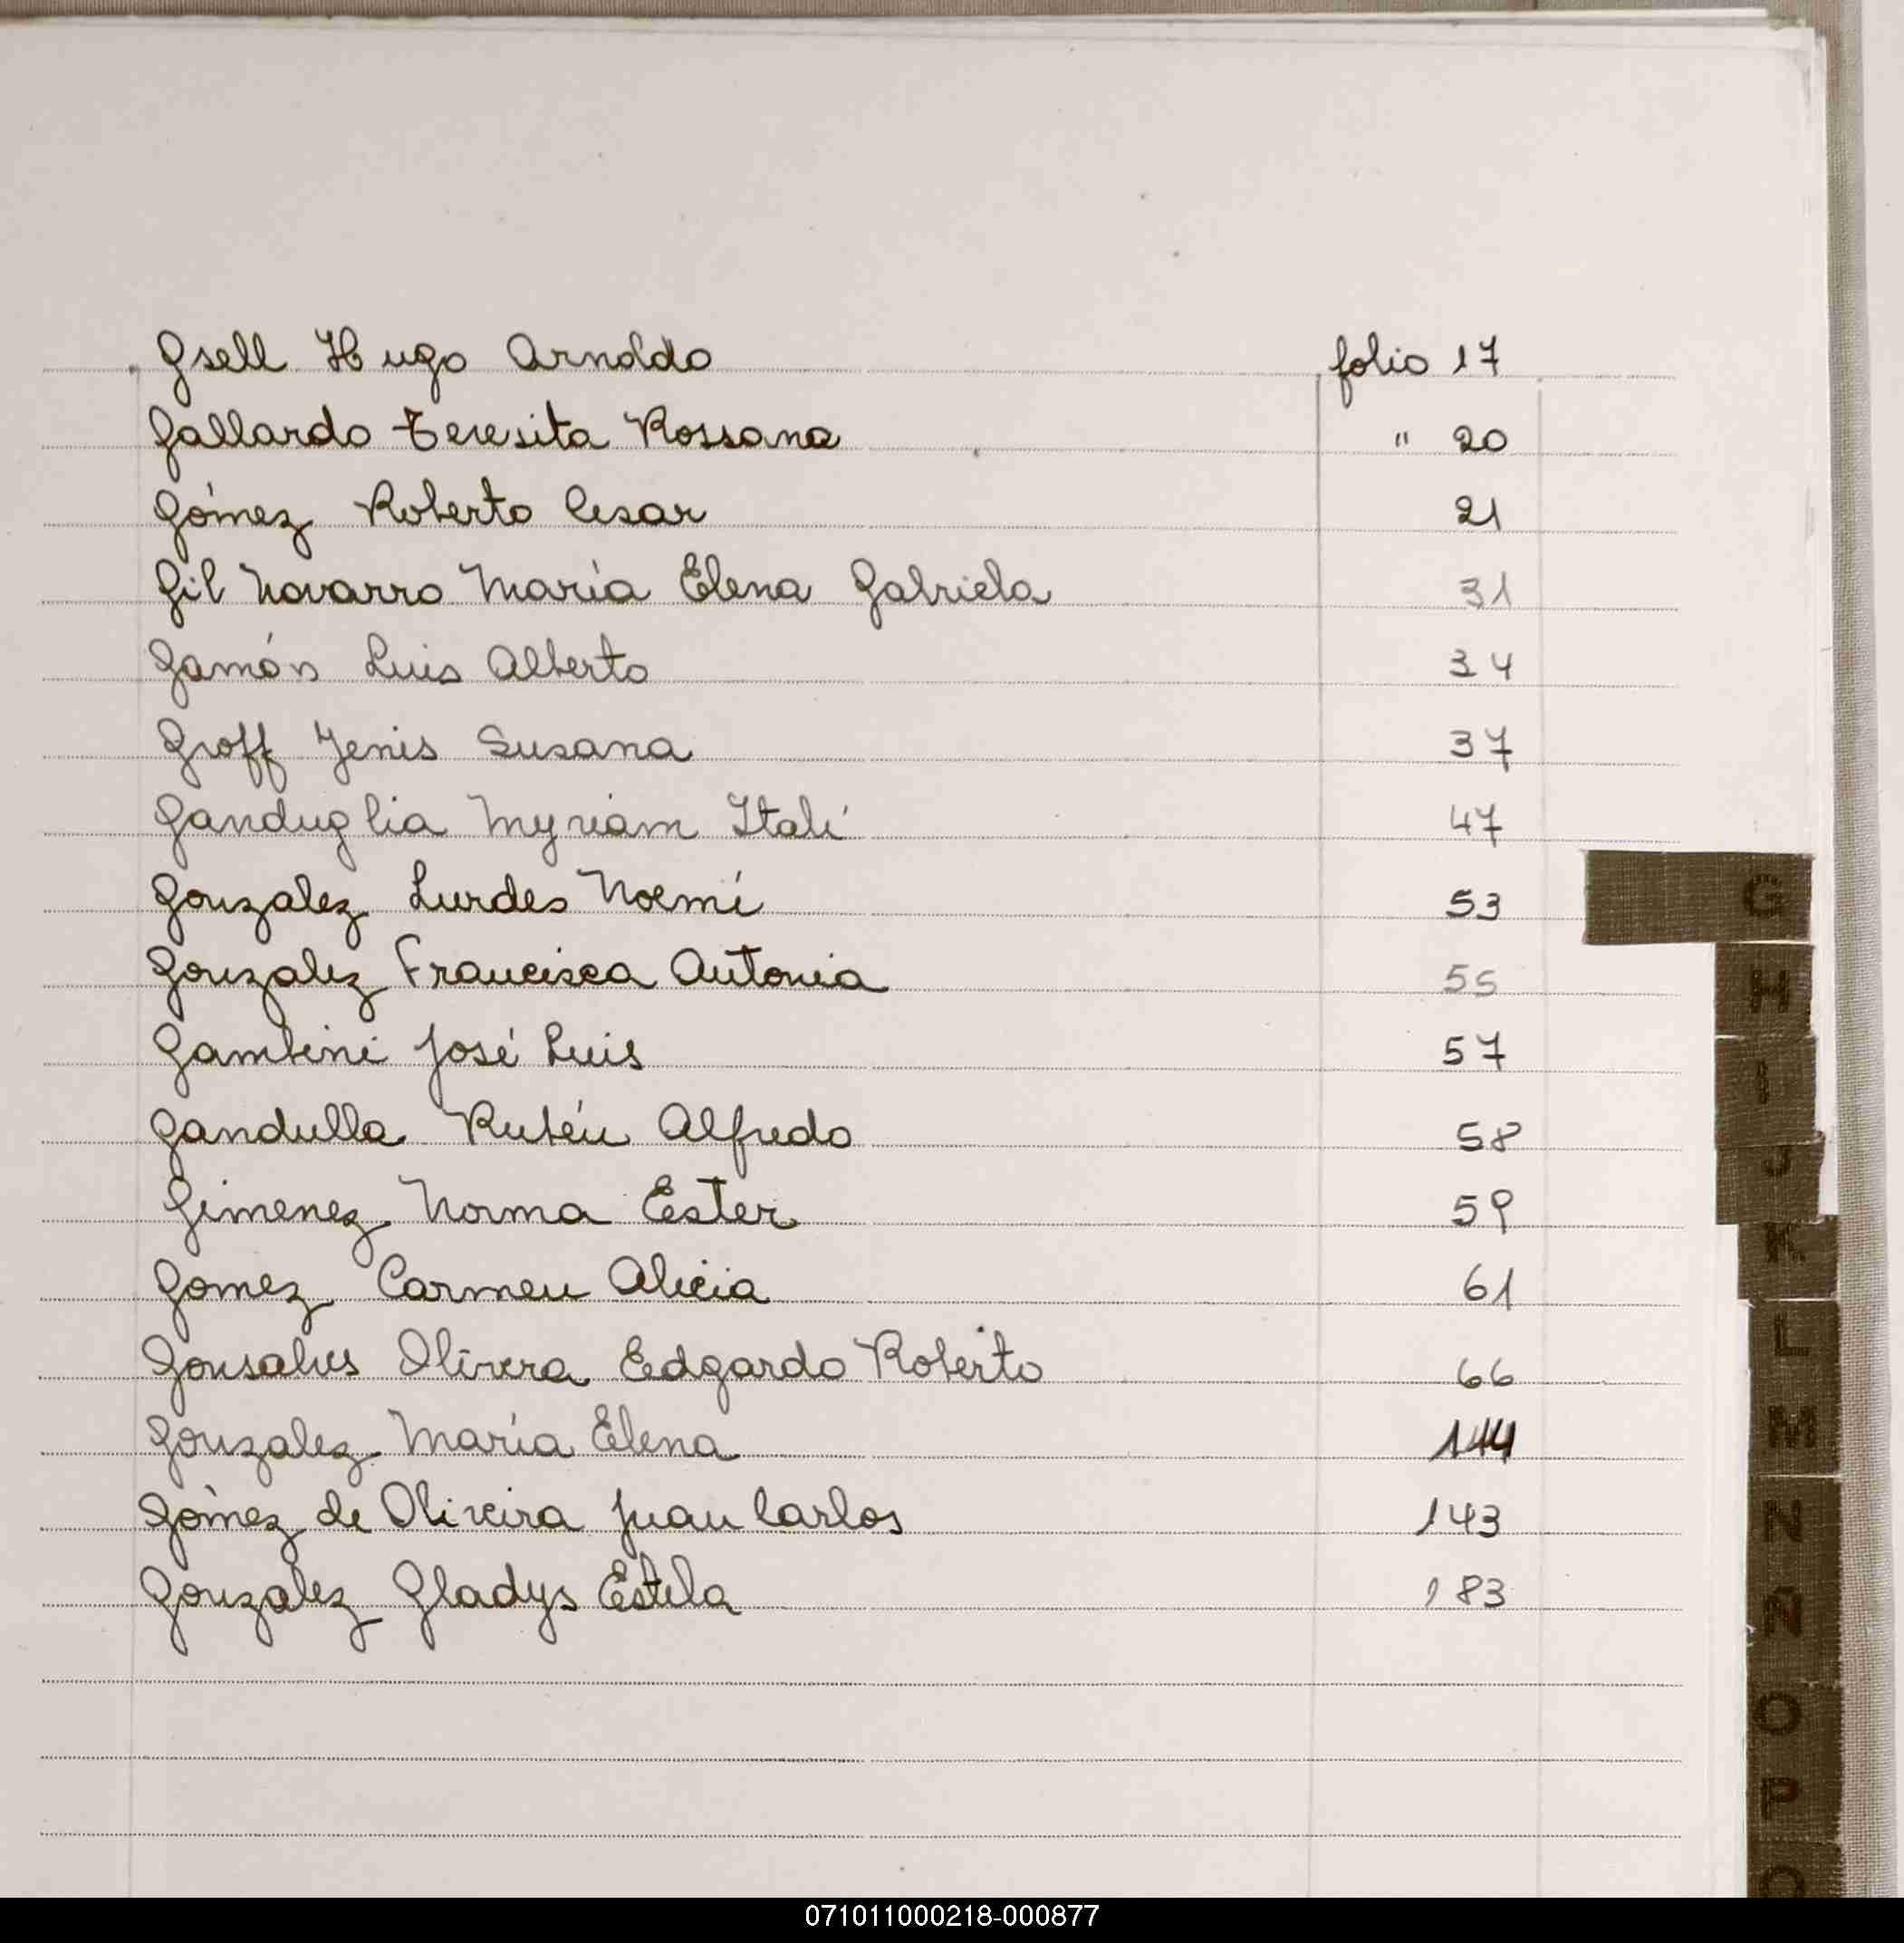 Gsell Hugo Arnoldo folio 17
Gallardo Teresita Rossana " 20
Gómez Roberto Cesar 21
Gil Navarro María Elena Gabriela 31
Gamón Luis Alberto 34
Groff Yenis Susana 37
Ganduglia Myriam Italí 47
Gonzalez Lurdes Noemí 53
Gonzalez Francisca Antonia 55
Gambini José Luis 57
Gandulla Rubén Alfredo 58
Gimenez Norma Ester 59
Gomez Carmen Alicia 61
Gonsalves Olivera Edgardo Roberto 66
Gonzalez María Elena 144
Gómez de Oliveira Juan Carlos 143
Gonzalez Gladys Estela 183
G
H
I
J
K
L
M
N
Ñ
O
P
071011000218-000877